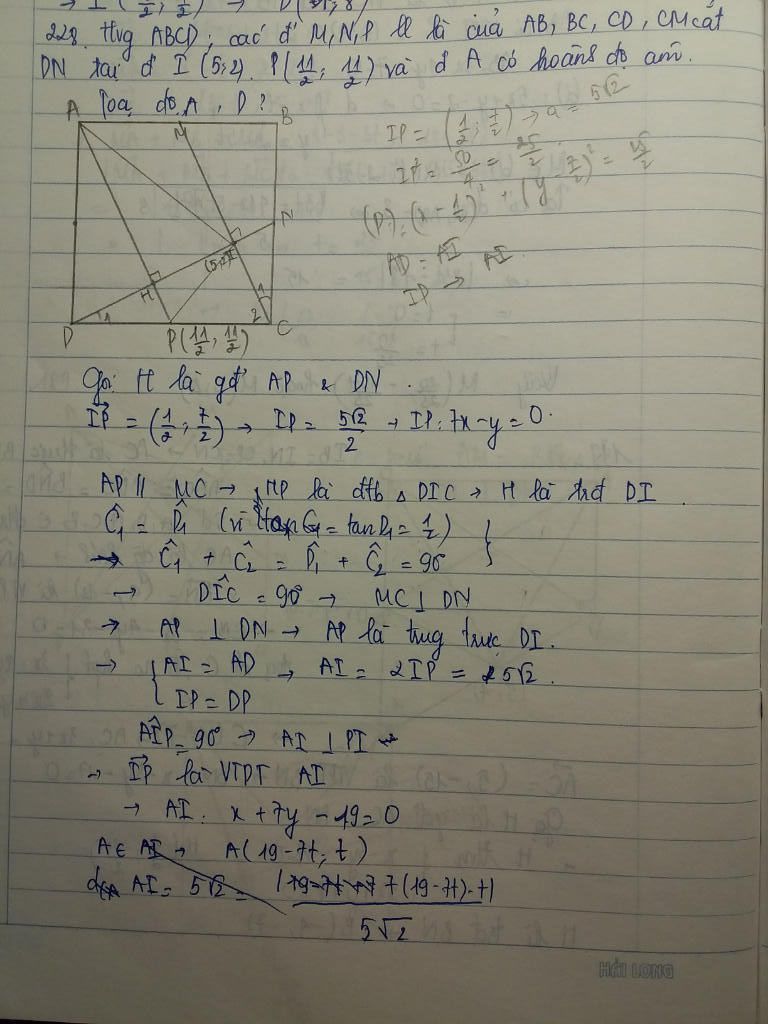 → I (1/2; 7/2) → D( ; 8)
228. Hvg ABCD; các đ' M, N, P ll là của AB, BC, CD, CM cắt
DN tại đ' I (5;2). P(11/2; 11/2) và đ' A có hoành độ âm.
Toạ độ A, D?
A M B
IP = (1/2; 7/2) → a = 5√2
IP² = 50/4 = 25/2
(P): (x - 1/2)² + (y - 7/2)² = 25/2
N
AD = AI
IP → AI
(5;2) I
H
1
1
2
D P(11/2; 11/2) C
Gọi H là gđ' AP & DN.
IP = (1/2; 7/2) → IP = 5√2/2 → IP: 7x - y = 0.
AP // MC → HP là đtb Δ DIC → H là trđ DI.
Ĉ1 = D̂1 (vì tan C1 = tan D1 = 1/2)
→ Ĉ1 + Ĉ2 = D̂1 + Ĉ2 = 90°
→ DIC = 90° → MC ⊥ DN
→ AP ⊥ DN → AP là trung trực DI.
→ { AI = AD → AI = 2IP = 5√2.
IP = DP
AIP = 90° → AI ⊥ PI
→ IP là VTPT AI
→ AI: x + 7y - 19 = 0
A ∈ AI → A(19 - 7t; t)
AI = 5√2 = |7(19 - 7t) - t|
5√2
HẢI LONG